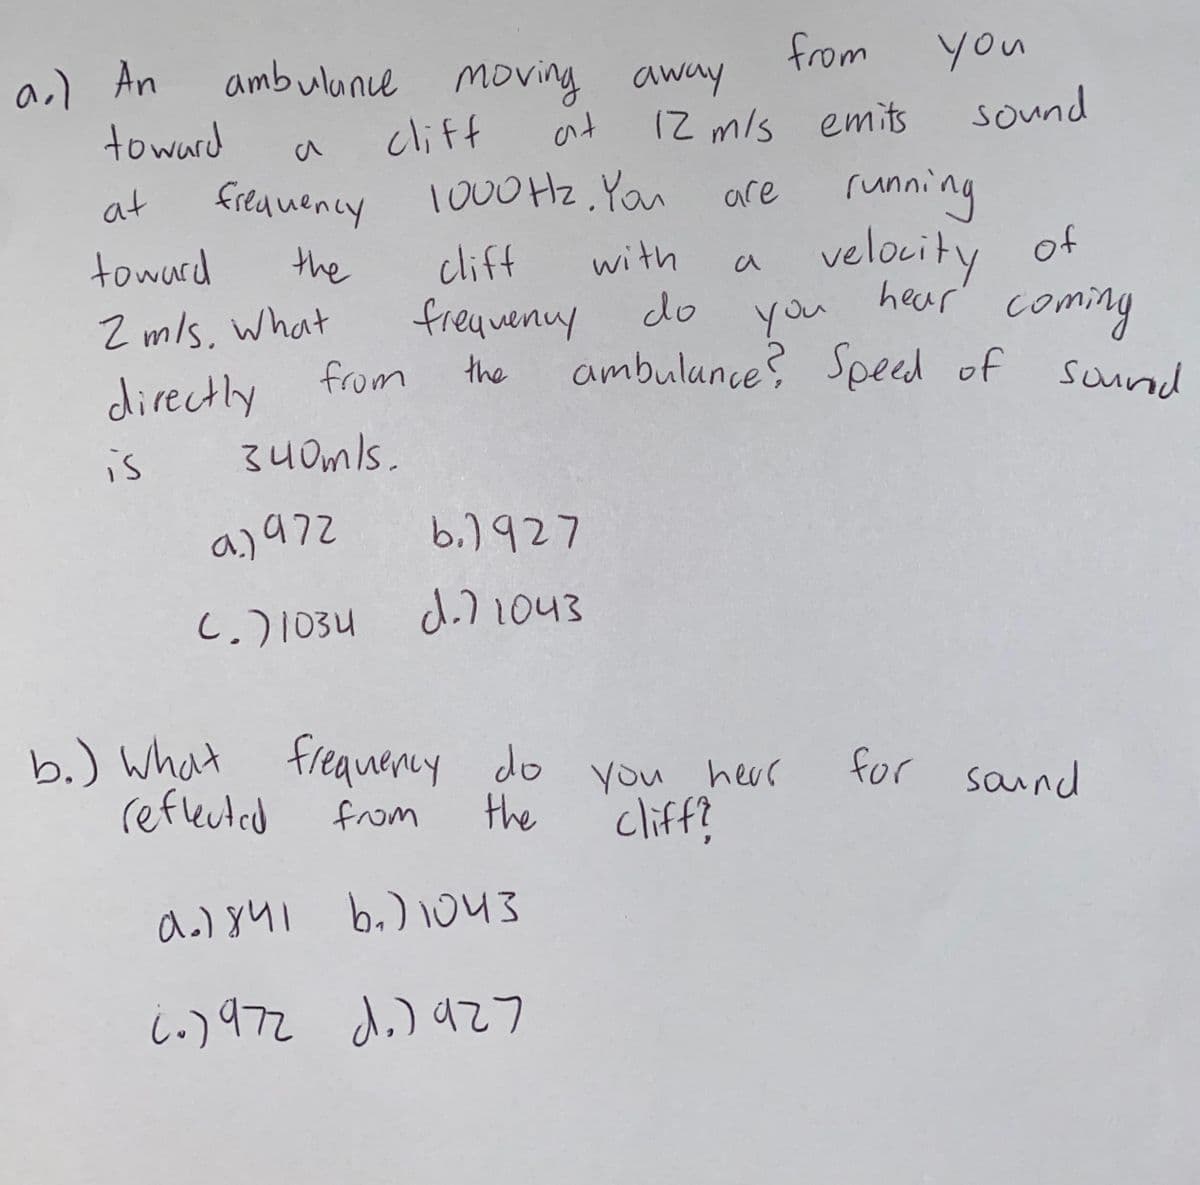 a.) An ambulance moving away from you
toward a cliff at 12 m/s emits sound
at frequency 1000Hz. You are running
toward the cliff with a velocity of
2 m/s. What frequency do you hear coming
directly from the ambulance? Speed of sound
is 340m/s.
a.) 972 b.) 927
c.) 1034 d.) 1043
b.) What frequency do you hear for sound
reflected from the cliff?
a.) 841 b.) 1043
c.) 972 d.) 927